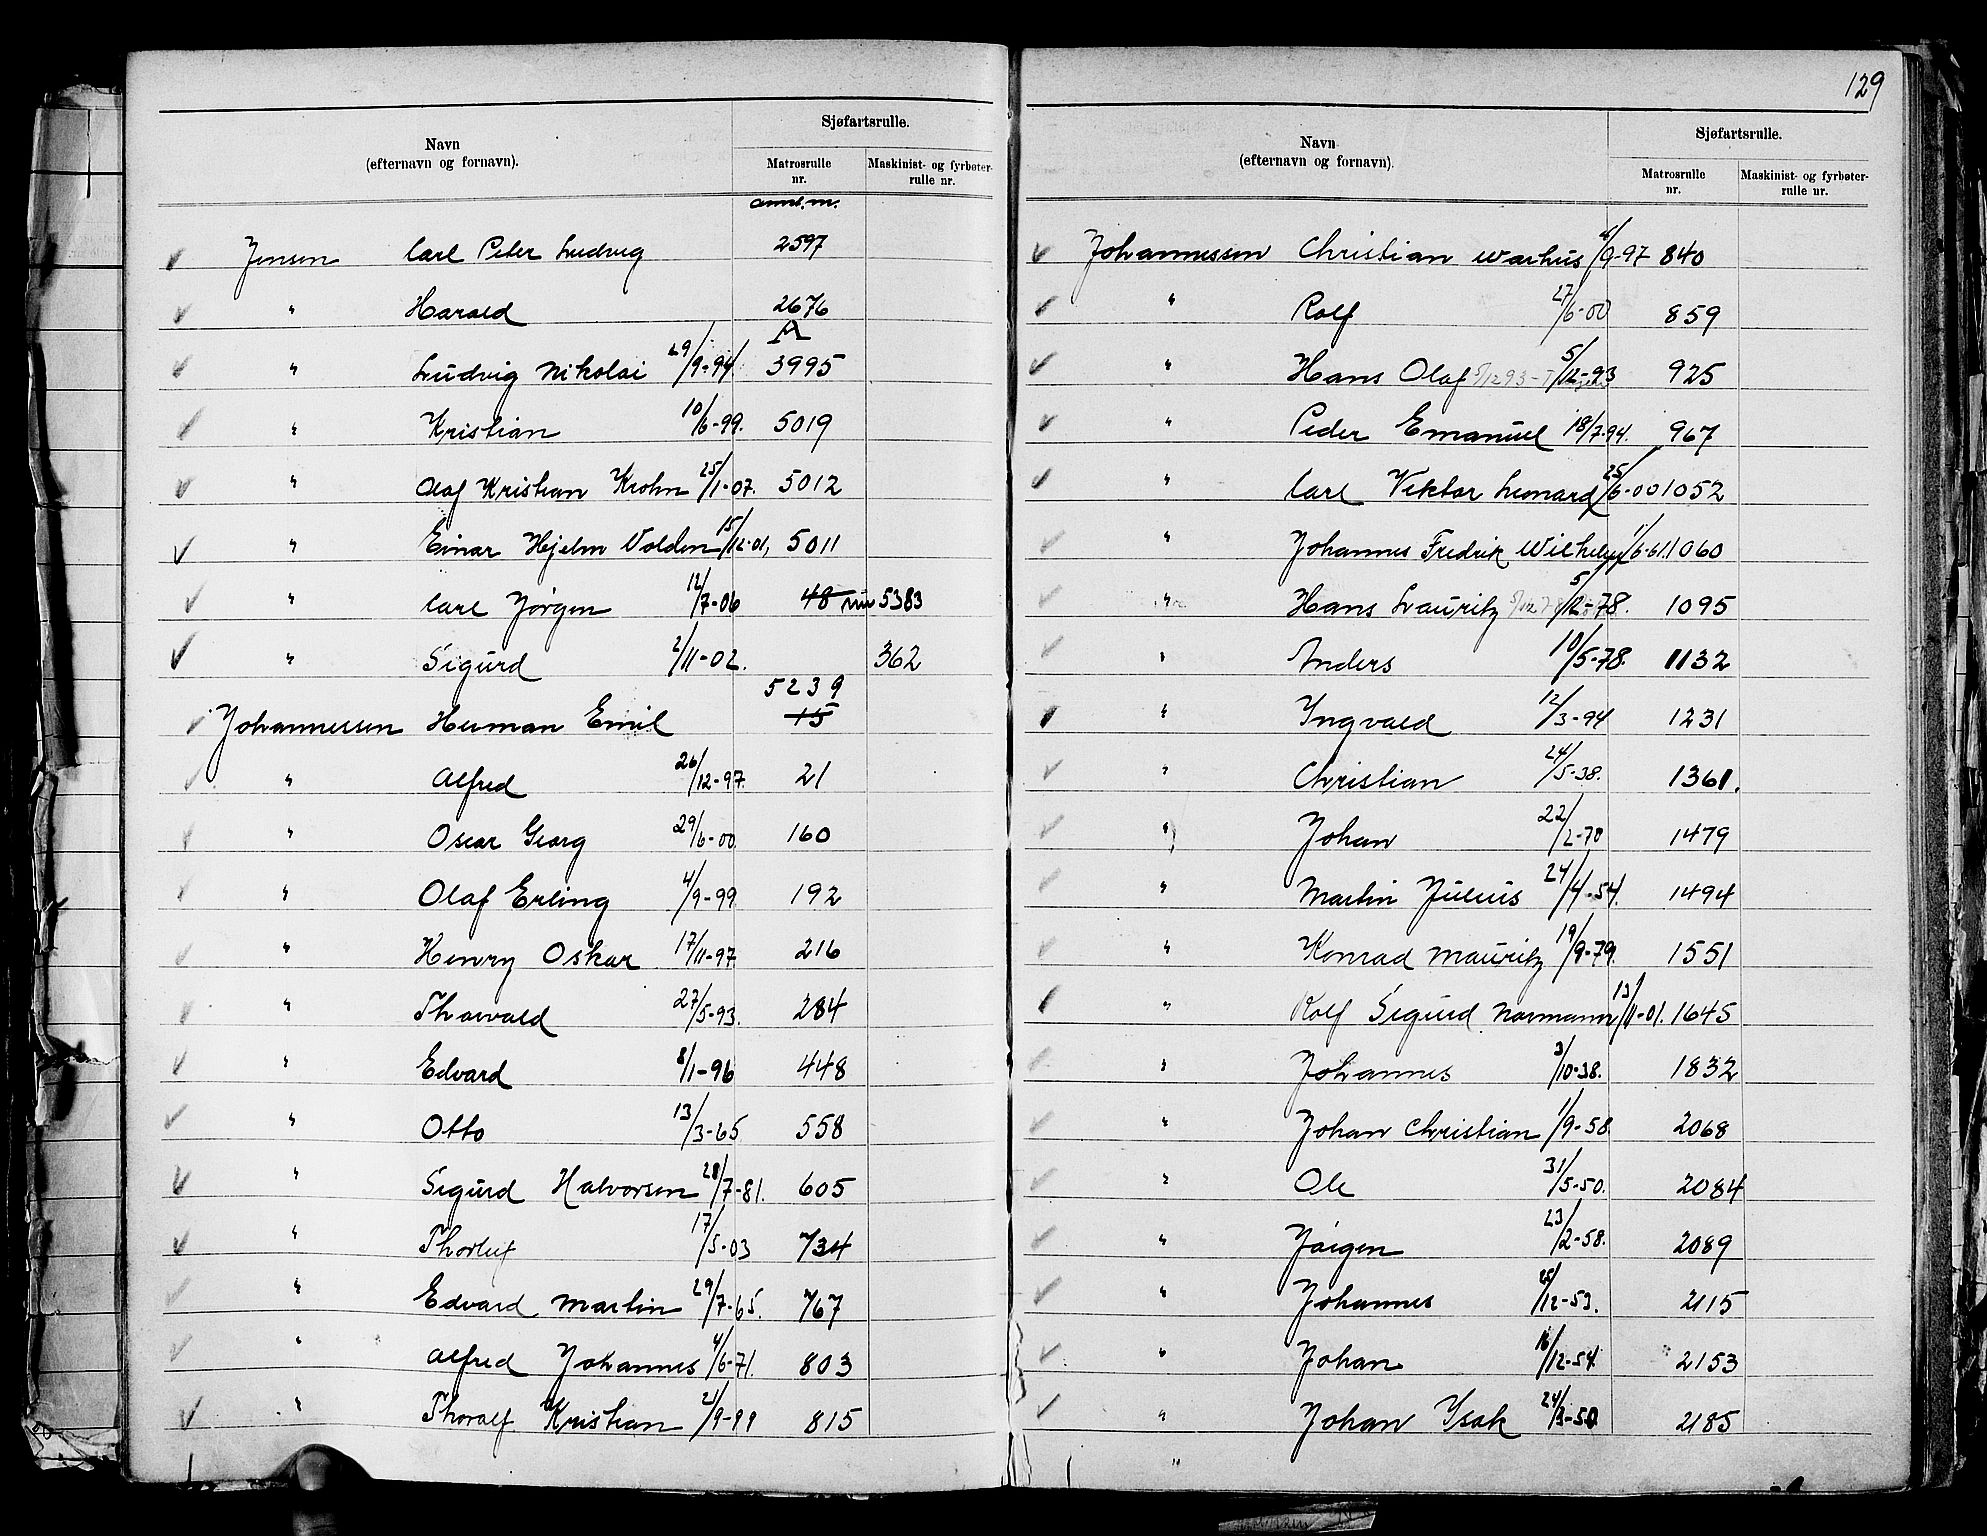 129
Navn
(efternavn og fornavn).
Sjøfartsrulle.
Matrosrulle
nr.
Maskinist- og fyrbøter-
rulle nr.
annl. m.
Jensen Carl Peter Ludvig 2597
" Harald 2676
A
" Ludvig Nikolai 29/9-94. 3995
" Kristian 10/6-99. 5019
" Olaf Kristian Krohn 25/1-07. 5012
" Einar Hjelm Volden 15/12-01, 5011
" Carl Jørgen 12/7-06 48 nu 5383
" Sigurd 2/11-02. 362
5239
Johannessen Herman Emil 15
" Alfred 26/12-97. 21
" Oscar Georg 29/6-00 160
" Olaf Erling 4/9-99 192
" Henry Oskar 17/11-97 216
" Thorvald 27/5-93. 284
" Edvard 8/1-96 448
" Otto 13/3-65 558
" Sigurd Halvorsen 28/7-81. 605
" Thorleif 17/5-03 734
" Edvard Martin 29/7-65. 767
" Alfred Johannes 4/6-71. 803
" Thoralf Kristian 21/9-99 815
Navn
(efternavn og fornavn).
Sjøfartsrulle.
Matrosrulle
nr.
Maskinist- og fyrbøter-
rulle nr.
Johannessen Christian Warhus /9-97 840
" Rolf 27/6-00 859
" Hans Olaf 5/12 93 5/12-93 925
" Peder Emanuel 18/7-94. 967
" Carl Viktor Leonard 25/6-00 1052
" Johannes Fredrik Wilhelm 1/6-61. 1060
" Hans Lauritz 5/12 78 5/12-78. 1095
" Anders 10/5-78. 1132
" Ingvald 12/3-94 1231
" Christian 24/5-38. 1361.
" Johan 22/2-70 1479
" Martin Julius 24/4-54. 1494
" Konrad Mauritz 19/9-79. 1551
" Rolf Sigurd Normann 13/11-01. 1645
" Johannes 3/10-38. 1832
" Johan Christian 1/9-58 2068
" Ole 31/5-50. 2084
" Jørgen 23/2-58. 2089
" Johannes 25/12-53. 2115
" Johan 16/12-54. 2153
" Johan Isak 24/3-50 2185
"